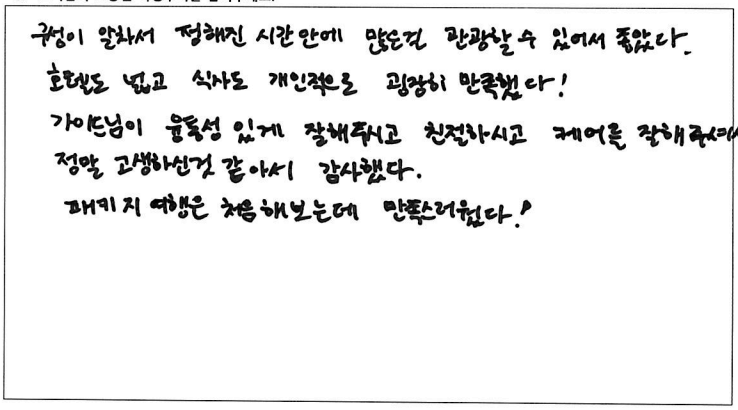 구성이 알차서 정해진 시간안에 많은걸 관광할 수 있어서 좋았다.
호텔도 넓고 식사도 개인적으로 굉장히 만족했다!
가이드님이 융통성 있게 잘해주시고 친절하시고 케어를 잘해주셔서
정말 고생하신것 같아서 감사했다.
패키지여행은 처음해보는데 만족스러웠다!